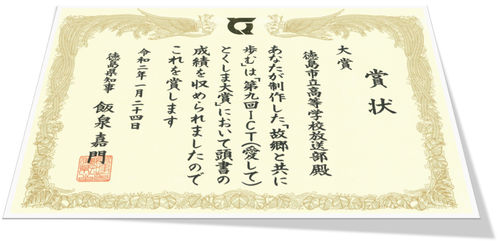 賞状
大賞
徳島市立高等学校放送部殿
あなたが制作した「故郷と共に
歩む」は、「第九回ICT(愛して)
とくしま大賞」において頭書の
成績を収められましたので
これを賞します
令和二年一月二十四日
徳島県知事 飯泉嘉門